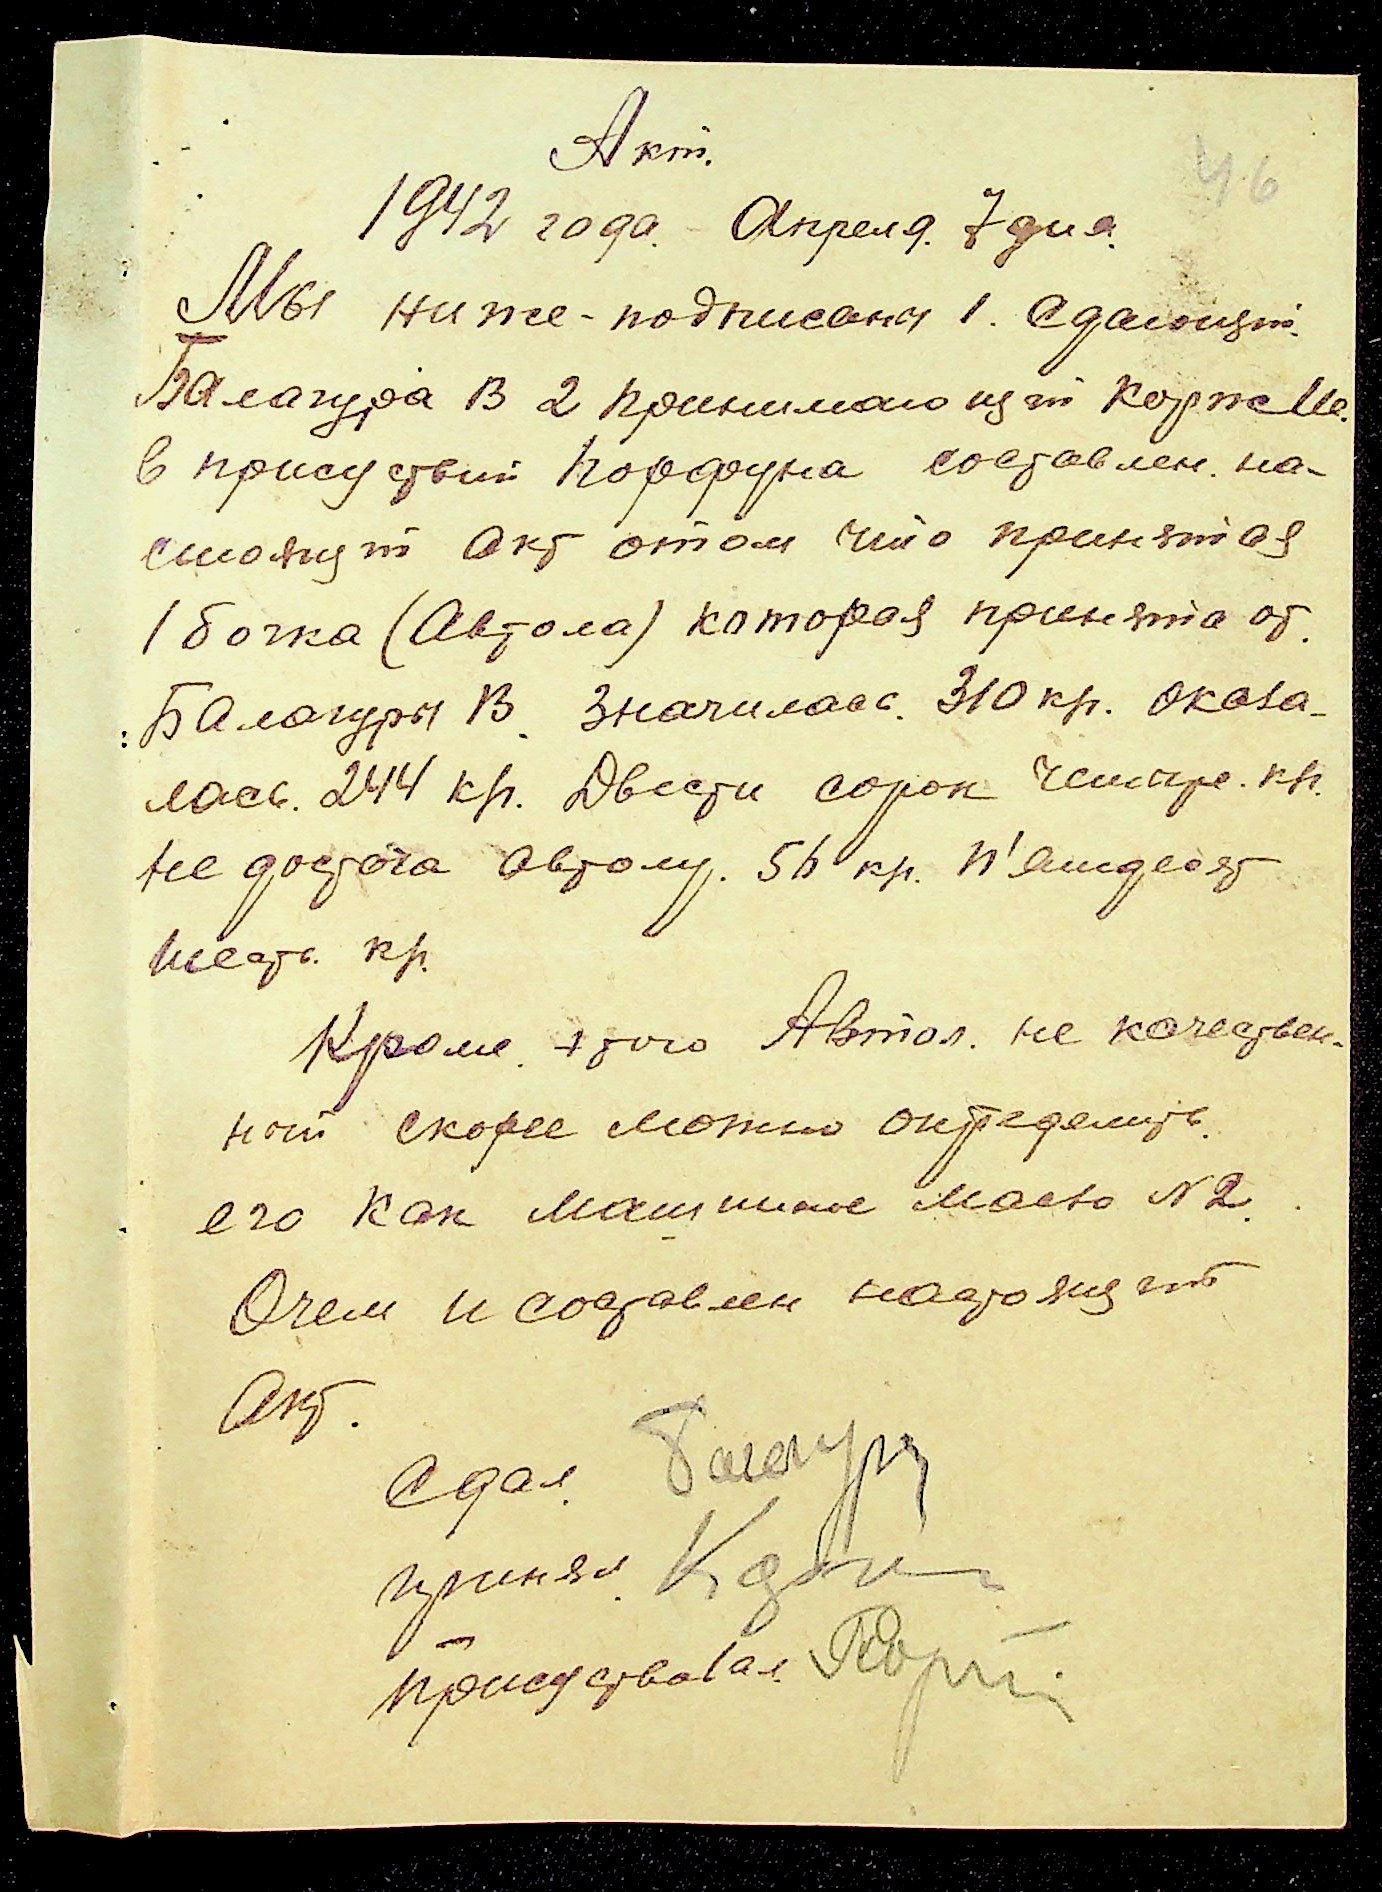 Акт.
46
1942 года. Апреля. 7 дня.
Мы ниже-подписаны 1. Сдающий.
Балагура В 2 принимающий Корже
в присуствии Порфуна составлен. на-
стоящий Акт отом что принятая
1 бочка (Автола) которая принята от.
Балагуры В. Значилась. 310 кр. Оказа-
лась. 244 кр. Двести сорок четыре. кр.
не достача автолу. 56 кр. п'ятдесят
шесть кр.
Кроме. этого Автол. не качествен-
ной скорее можно определить.
его как машинное масло N 2.
Очем и составлен настоящий
Акт.
Сдал. Балагура
принял.
присуствовал.